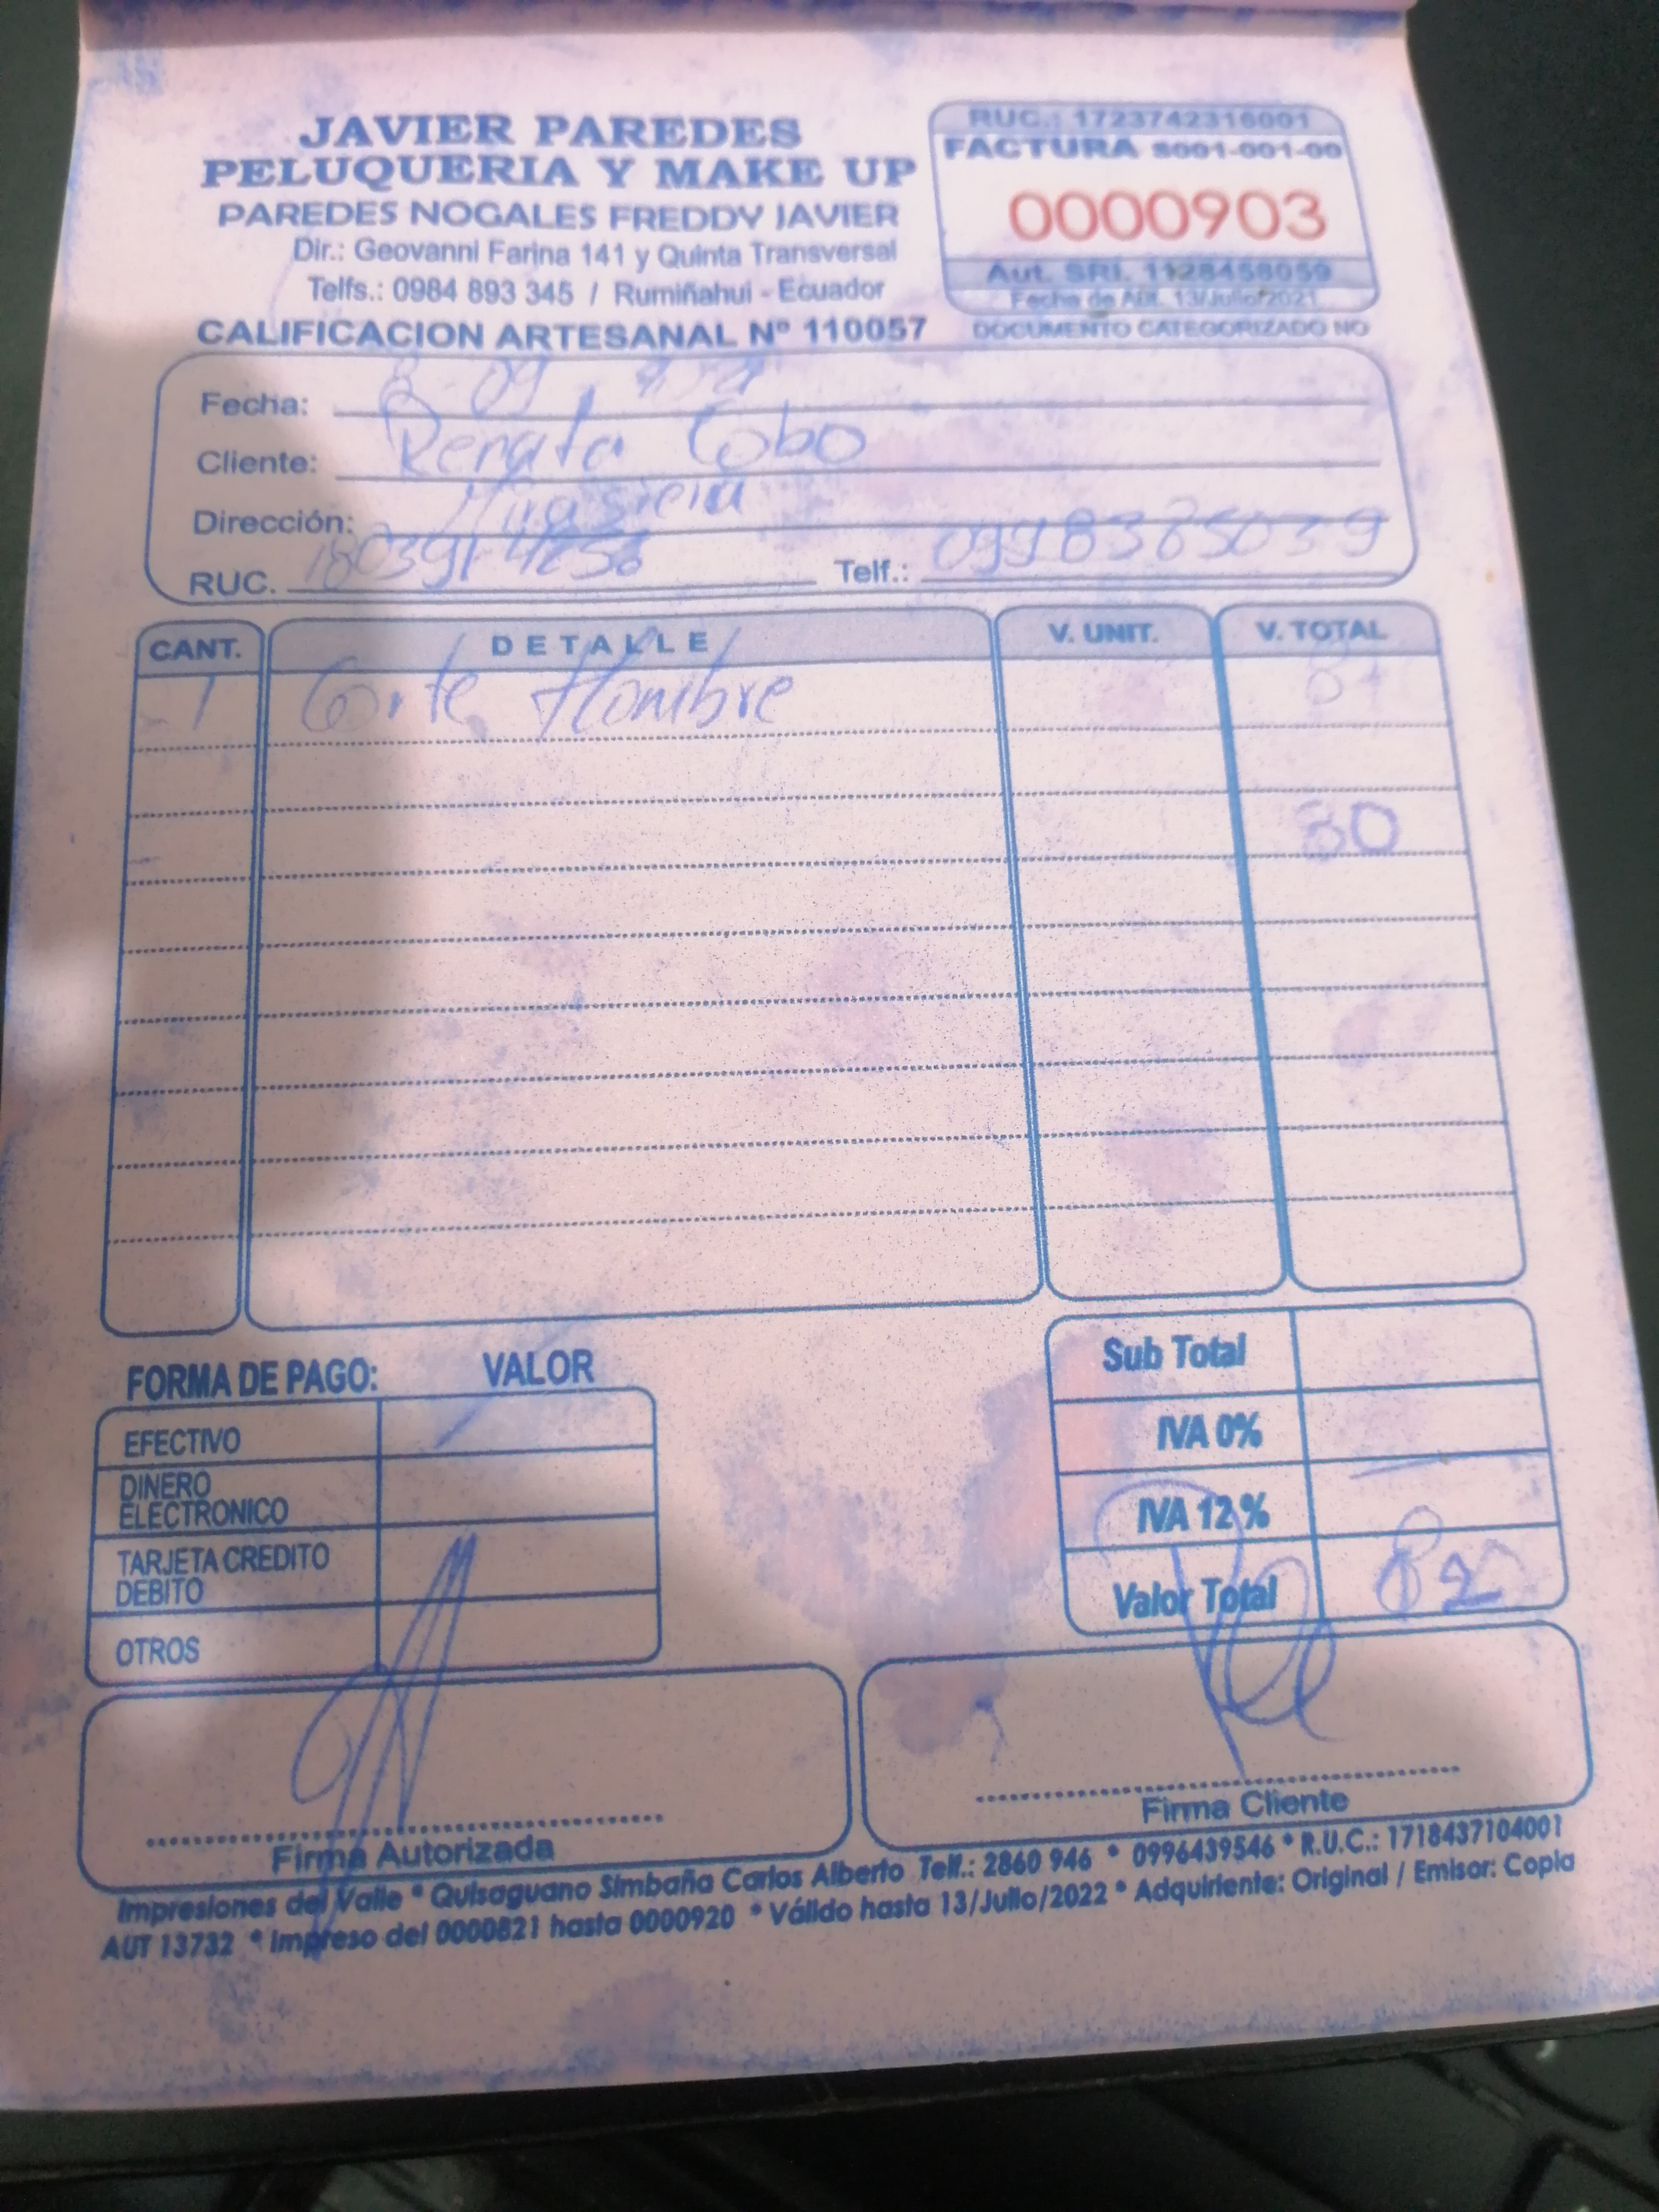 JAVIER PAREDES
PELUQUERIA Y MAKE UP
PAREDES NOGALES FREDDY JAVIER
Dir.: Geovanni Farina 141 y Quinta Transversal
Telfs.: 0984 893 345 / Rumiñahui - Ecuador
CALIFICACION ARTESANAL Nº 110057
RUC.: 1723742316001
FACTURA S001-001-00
0000903
Aut. SRI. 1128458059
Fecha de Aut. 13/Julio/2021
DOCUMENTO CATEGORIZADO NO
Fecha: 8-09
Cliente: Renata Cobo
Dirección:
RUC. Telf.: 0998385039
CANT. DETALLE V. UNIT. V. TOTAL
1 Corte Hombre
80
FORMA DE PAGO: VALOR
EFECTIVO
DINERO ELECTRONICO
TARJETA CREDITO DEBITO
OTROS
Sub Total
IVA 0%
IVA 12%
Valor Total 82
Firma Autorizada
Firma Cliente
Impresiones del Valle * Quisaguano Simbaña Carlos Alberto Telf.: 2860 946 * 0996439546 * R.U.C.: 1718437104001
AUT 13732 * Impreso del 0000821 hasta 0000920 * Válido hasta 13/Julio/2022 * Adquiriente: Original / Emisor: Copia